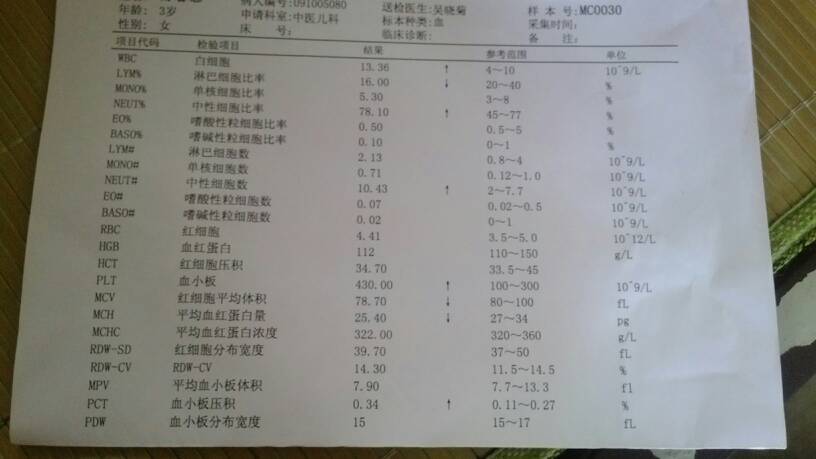 病人编号:091005080 送检医生:吴晓菊 样 本 号:MC0030
年龄: 3岁 申请科室:中医儿科 标本种类:血 采集时间:
性别: 女 床 号: 临床诊断: 备 注:
项目代码 检验项目 结果 参考范围 单位
WBC 白细胞 13.36 ↑ 4～10 10^9/L
LYM% 淋巴细胞比率 16.00 ↓ 20～40 %
MONO% 单核细胞比率 5.30 3～8 %
NEUT% 中性细胞比率 78.10 ↑ 45～77 %
EO% 嗜酸性粒细胞比率 0.50 0.5～5 %
BASO% 嗜碱性粒细胞比率 0.10 0～1 %
LYM# 淋巴细胞数 2.13 0.8～4 10^9/L
MONO# 单核细胞数 0.71 0.12～1.0 10^9/L
NEUT# 中性细胞数 10.43 ↑ 2～7.7 10^9/L
EO# 嗜酸性粒细胞数 0.07 0.02～0.5 10^9/L
BASO# 嗜碱性粒细胞数 0.02 0～1 10^9/L
RBC 红细胞 4.41 3.5～5.0 10^12/L
HGB 血红蛋白 112 110～150 g/L
HCT 红细胞压积 34.70 33.5～45
PLT 血小板 430.00 ↑ 100～300 10^9/L
MCV 红细胞平均体积 78.70 ↓ 80～100 fL
MCH 平均血红蛋白量 25.40 ↓ 27～34 pg
MCHC 平均血红蛋白浓度 322.00 320～360 g/L
RDW-SD 红细胞分布宽度 39.70 37～50 fL
RDW-CV RDW-CV 14.30 11.5～14.5 %
MPV 平均血小板体积 7.90 7.7～13.3 fl
PCT 血小板压积 0.34 ↑ 0.11～0.27 %
PDW 血小板分布宽度 15 15～17 fL